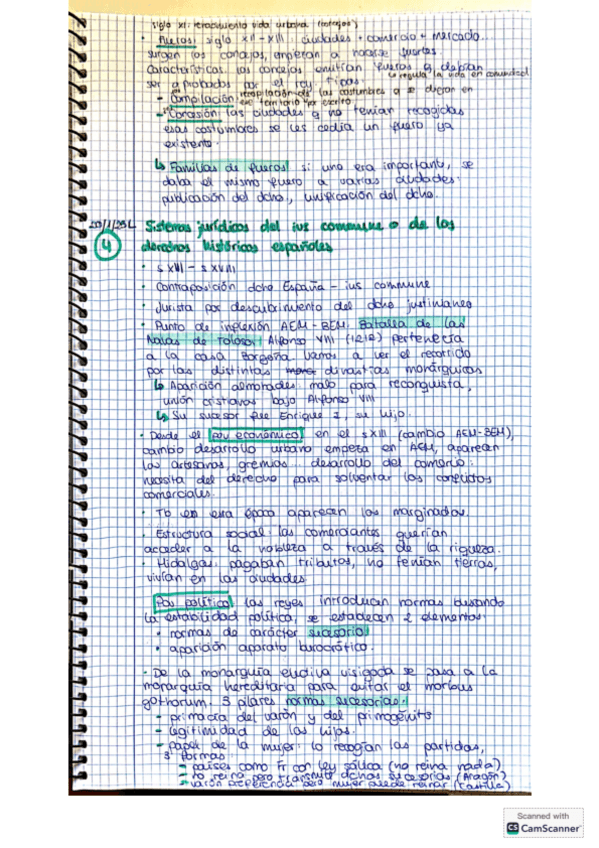 siglo XI: renacimiento vida urbana (burgos)
· Fueros: siglo XII - XIII: ciudades + comercio + mercado.
surgen los concejos, empiezan a hacerse fuertes.
Características: los concejos emitían fueros q debían
↳ regula la vida en comunidad
ser aprobados por el rey. Tipos:
- Compilación: recopilación de las costumbres q se dieron en
ese territorio por escrito
- Concesión: las ciudades q no tenían recogidas
esas costumbres se les cedía un fuero ya
existente.
↳ Familias de fueros: si uno era importante, se
daba el mismo fuero a varias ciudades.
publicación del dcho, unificación del dcho.
4
Sistemas jurídicos del ius commune o de los
derechos históricos españoles
· s XIII - s XVIII
· Contraposición dcho España - ius commune
· Jurista por descubrimiento del dcho justinianeo
· Punto de inflexión AEM - BEM: Batalla de las
Navas de Tolosa: Alfonso VIII (1212) pertenecía
a la casa Borgoña. Vamos a ver el recorrido
por las distintas dinastías monárquicas
↳ Aparición almohades malo para reconquista,
unión cristianos bajo Alfonso VIII
↳ Su sucesor fue Enrique I, su hijo.
· Desde el pov económico en el s XIII (cambio AEM-BEM),
cambio desarrollo urbano empieza en AEM, aparecen
los artesanos, gremios... desarrollo del comercio:
necesita del derecho para solventar los conflictos
comerciales.
· Tb en esta época aparecen los marginados.
· Estructura social: los comerciantes querían
acceder a la nobleza a través de la riqueza.
· Hidalgos: pagaban tributos, no tenían tierras,
vivían en las ciudades.
político: los reyes introducen normas buscando
la estabilidad política, se establecen 2 elementos:
· normas de carácter sucesorio
· aparición aparato burocrático.
· De la monarquía electiva visigoda se pasa a la
monarquía hereditaria para evitar el morbus
gothorum. 3 pilares normas sucesorias:
- primacía del varón y del primogénito
- legitimidad de los hijos.
- papel de la mujer: lo recogían las partidas,
3 formas
- países como Fr con ley sálica (no reina nada)
- no reina pero transmite dchos sucesorios (Aragón)
- varón preferencia pero mujer puede reinar (Castilla)
Scanned with
CS CamScanner